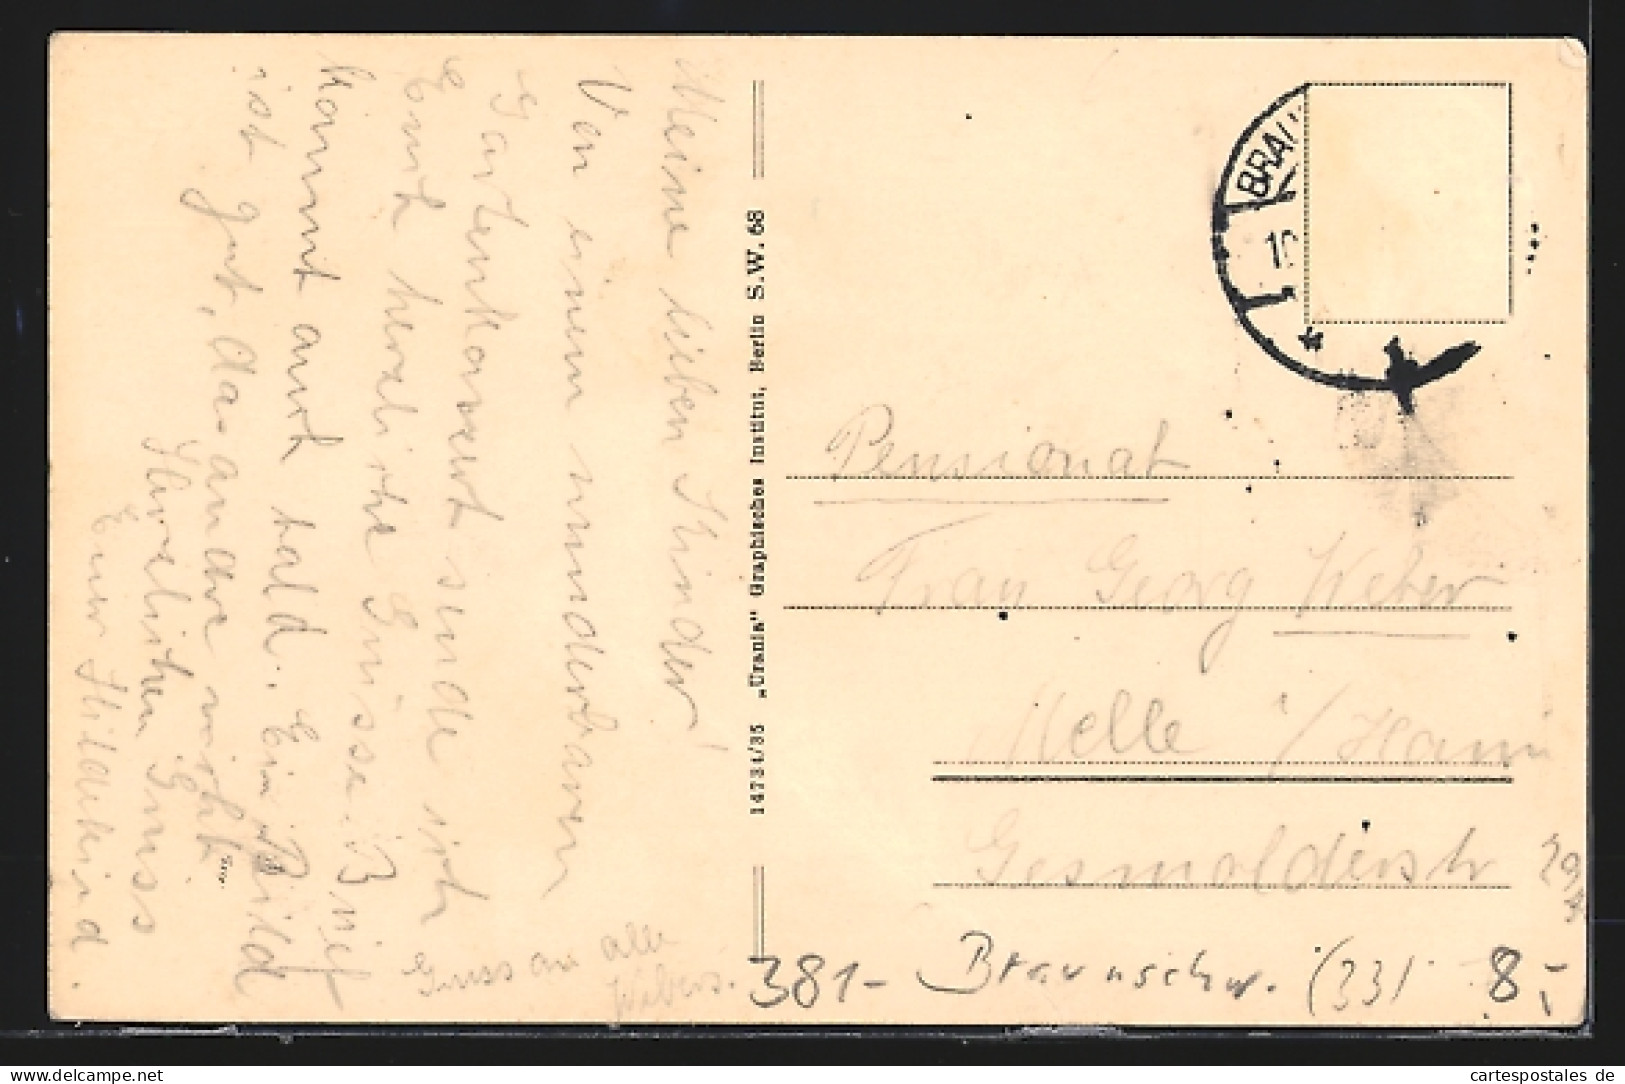 Meine lieben Kinder!
Von einem wunderbaren
Gartenkonzert sende ich
Euch herzliche Grüsse. Brief
kommt auch bald. Ein Bild
ist gut, das andre nicht.
Herzlichen Gruss
Euer Hildekind.
Gruss an alle
Webers.
14734/35 „Urania" Graphisches Institut, Berlin S.W. 68
BRAU
Pensionat
Frau Georg Weber
Melle i/Hann
Gesmolderstr
381- Braunschw. (33) 8,-
cartespostales de